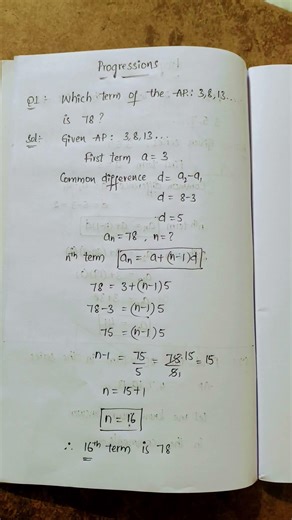 Progressions
Q1:- Which term of the AP: 3,8,13...
is 78?
Sol:- Given AP: 3,8,13...
First term a = 3
Common difference d = a₂-a₁
d = 8-3
d = 5
aₙ = 78 , n = ?
nth term aₙ = a+(n-1)d
78 = 3+(n-1)5
78-3 = (n-1)5
75 = (n-1)5
n-1 = 75/5 = 75 15/5 1 = 15
n = 15+1
n = 16
∴ 16th term is 78